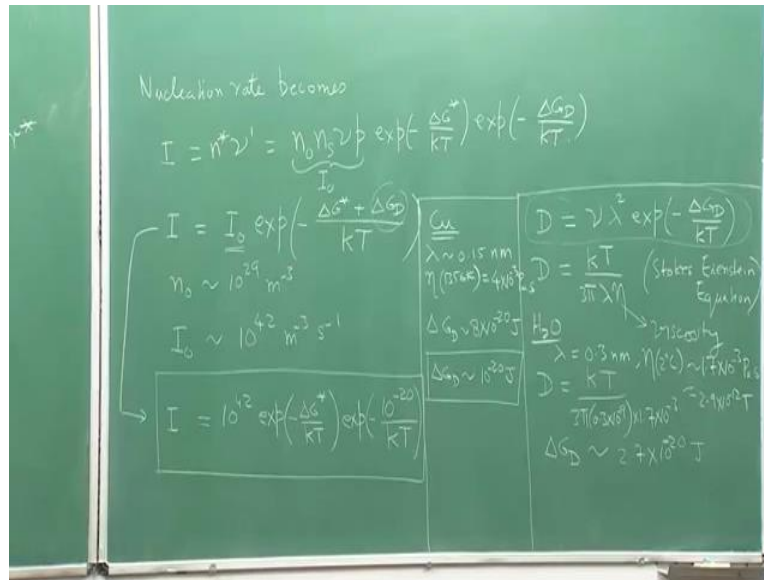 r*
Nucleation rate becomes
I = n*ν' = n₀ nₛ ν p exp(- ΔG*/kT) exp(- ΔG_D/kT)
I₀
I = I₀ exp(- (ΔG* + ΔG_D)/kT)
n₀ ~ 10²⁹ m⁻³
I₀ ~ 10⁴² m⁻³ s⁻¹
I = 10⁴² exp(- ΔG*/kT) exp(- 10⁻²⁰/kT)
Cu
λ ~ 0.15 nm
η(1356K) = 4×10⁻³ Pa s
ΔG_D ~ 8×10⁻²⁰ J
ΔG_D ~ 10⁻²⁰ J
D = ν λ² exp(- ΔG_D/kT)
D = kT/3πλη (Stokes Einstein Equation)
viscosity
H₂O
λ = 0.3 nm, η(2°C) ~ 1.7×10⁻³ Pa s
D = kT/3π(0.3×10⁻⁹)×1.7×10⁻³ = 2.9×10⁻¹² T
ΔG_D ~ 2.7×10⁻²⁰ J